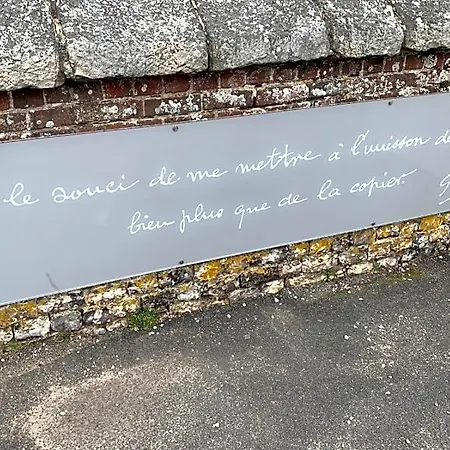 le souci de me mettre à l'unisson de
bien plus que de la copier.